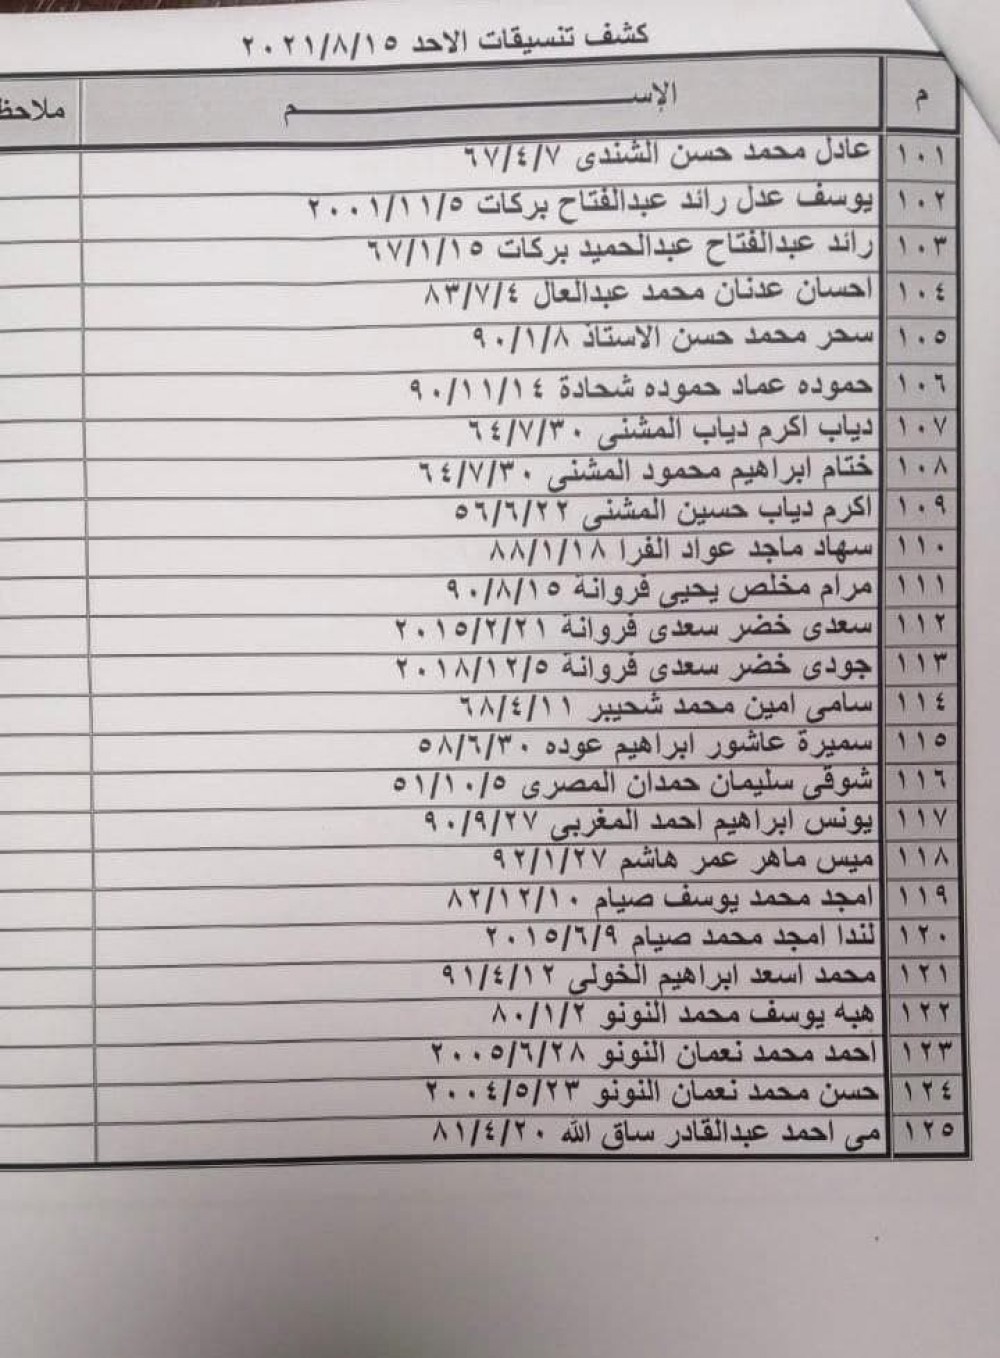 كشف تنسيقات الاحد ٢٠٢١/٨/١٥
م الإســـــــم ملاحظ
١٠١ عادل محمد حسن الشندى ٦٧/٤/٧
١٠٢ يوسف عدل رائد عبدالفتاح بركات ٢٠٠١/١١/٥
١٠٣ رائد عبدالفتاح عبدالحميد بركات ٦٧/١/١٥
١٠٤ احسان عدنان محمد عبدالعال ٨٣/٧/٤
١٠٥ سحر محمد حسن الاستاذ ٩٠/١/٨
١٠٦ حموده عماد حموده شحادة ٩٠/١١/١٤
١٠٧ دياب اكرم دياب المشنى ٦٤/٧/٣٠
١٠٨ ختام ابراهيم محمود المشنى ٦٤/٧/٣٠
١٠٩ اكرم دياب حسين المشنى ٥٦/٦/٢٢
١١٠ سهاد ماجد عواد الفرا ٨٨/١/١٨
١١١ مرام مخلص يحيى فروانة ٩٠/٨/١٥
١١٢ سعدى خضر سعدى فروانة ٢٠١٥/٢/٢١
١١٣ جودى خضر سعدى فروانة ٢٠١٨/١٢/٥
١١٤ سامى امين محمد شحيبر ٦٨/٤/١١
١١٥ سميرة عاشور ابراهيم عوده ٥٨/٦/٣٠
١١٦ شوقى سليمان حمدان المصرى ٥١/١٠/٥
١١٧ يونس ابراهيم احمد المغربى ٩٠/٩/٢٧
١١٨ ميس ماهر عمر هاشم ٩٢/١/٢٧
١١٩ امجد محمد يوسف صيام ٨٢/١٢/١٠
١٢٠ لندا امجد محمد صيام ٢٠١٥/٦/٩
١٢١ محمد اسعد ابراهيم الخولى ٩١/٤/١٢
١٢٢ هبه يوسف محمد النونو ٨٠/١/٢
١٢٣ احمد محمد نعمان النونو ٢٠٠٥/٦/٢٨
١٢٤ حسن محمد نعمان النونو ٢٠٠٤/٥/٢٣
١٢٥ مى احمد عبدالقادر ساق الله ٨١/٤/٢٠